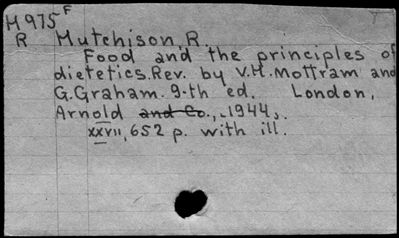 H975F
R Hutchison, R.
Food and the principles of
dietetics. Rev. by V.H. Mottram and
G. Graham. 9-th ed. London,
Arnold and Co., 1944,.
xxvii, 652 p. with ill.